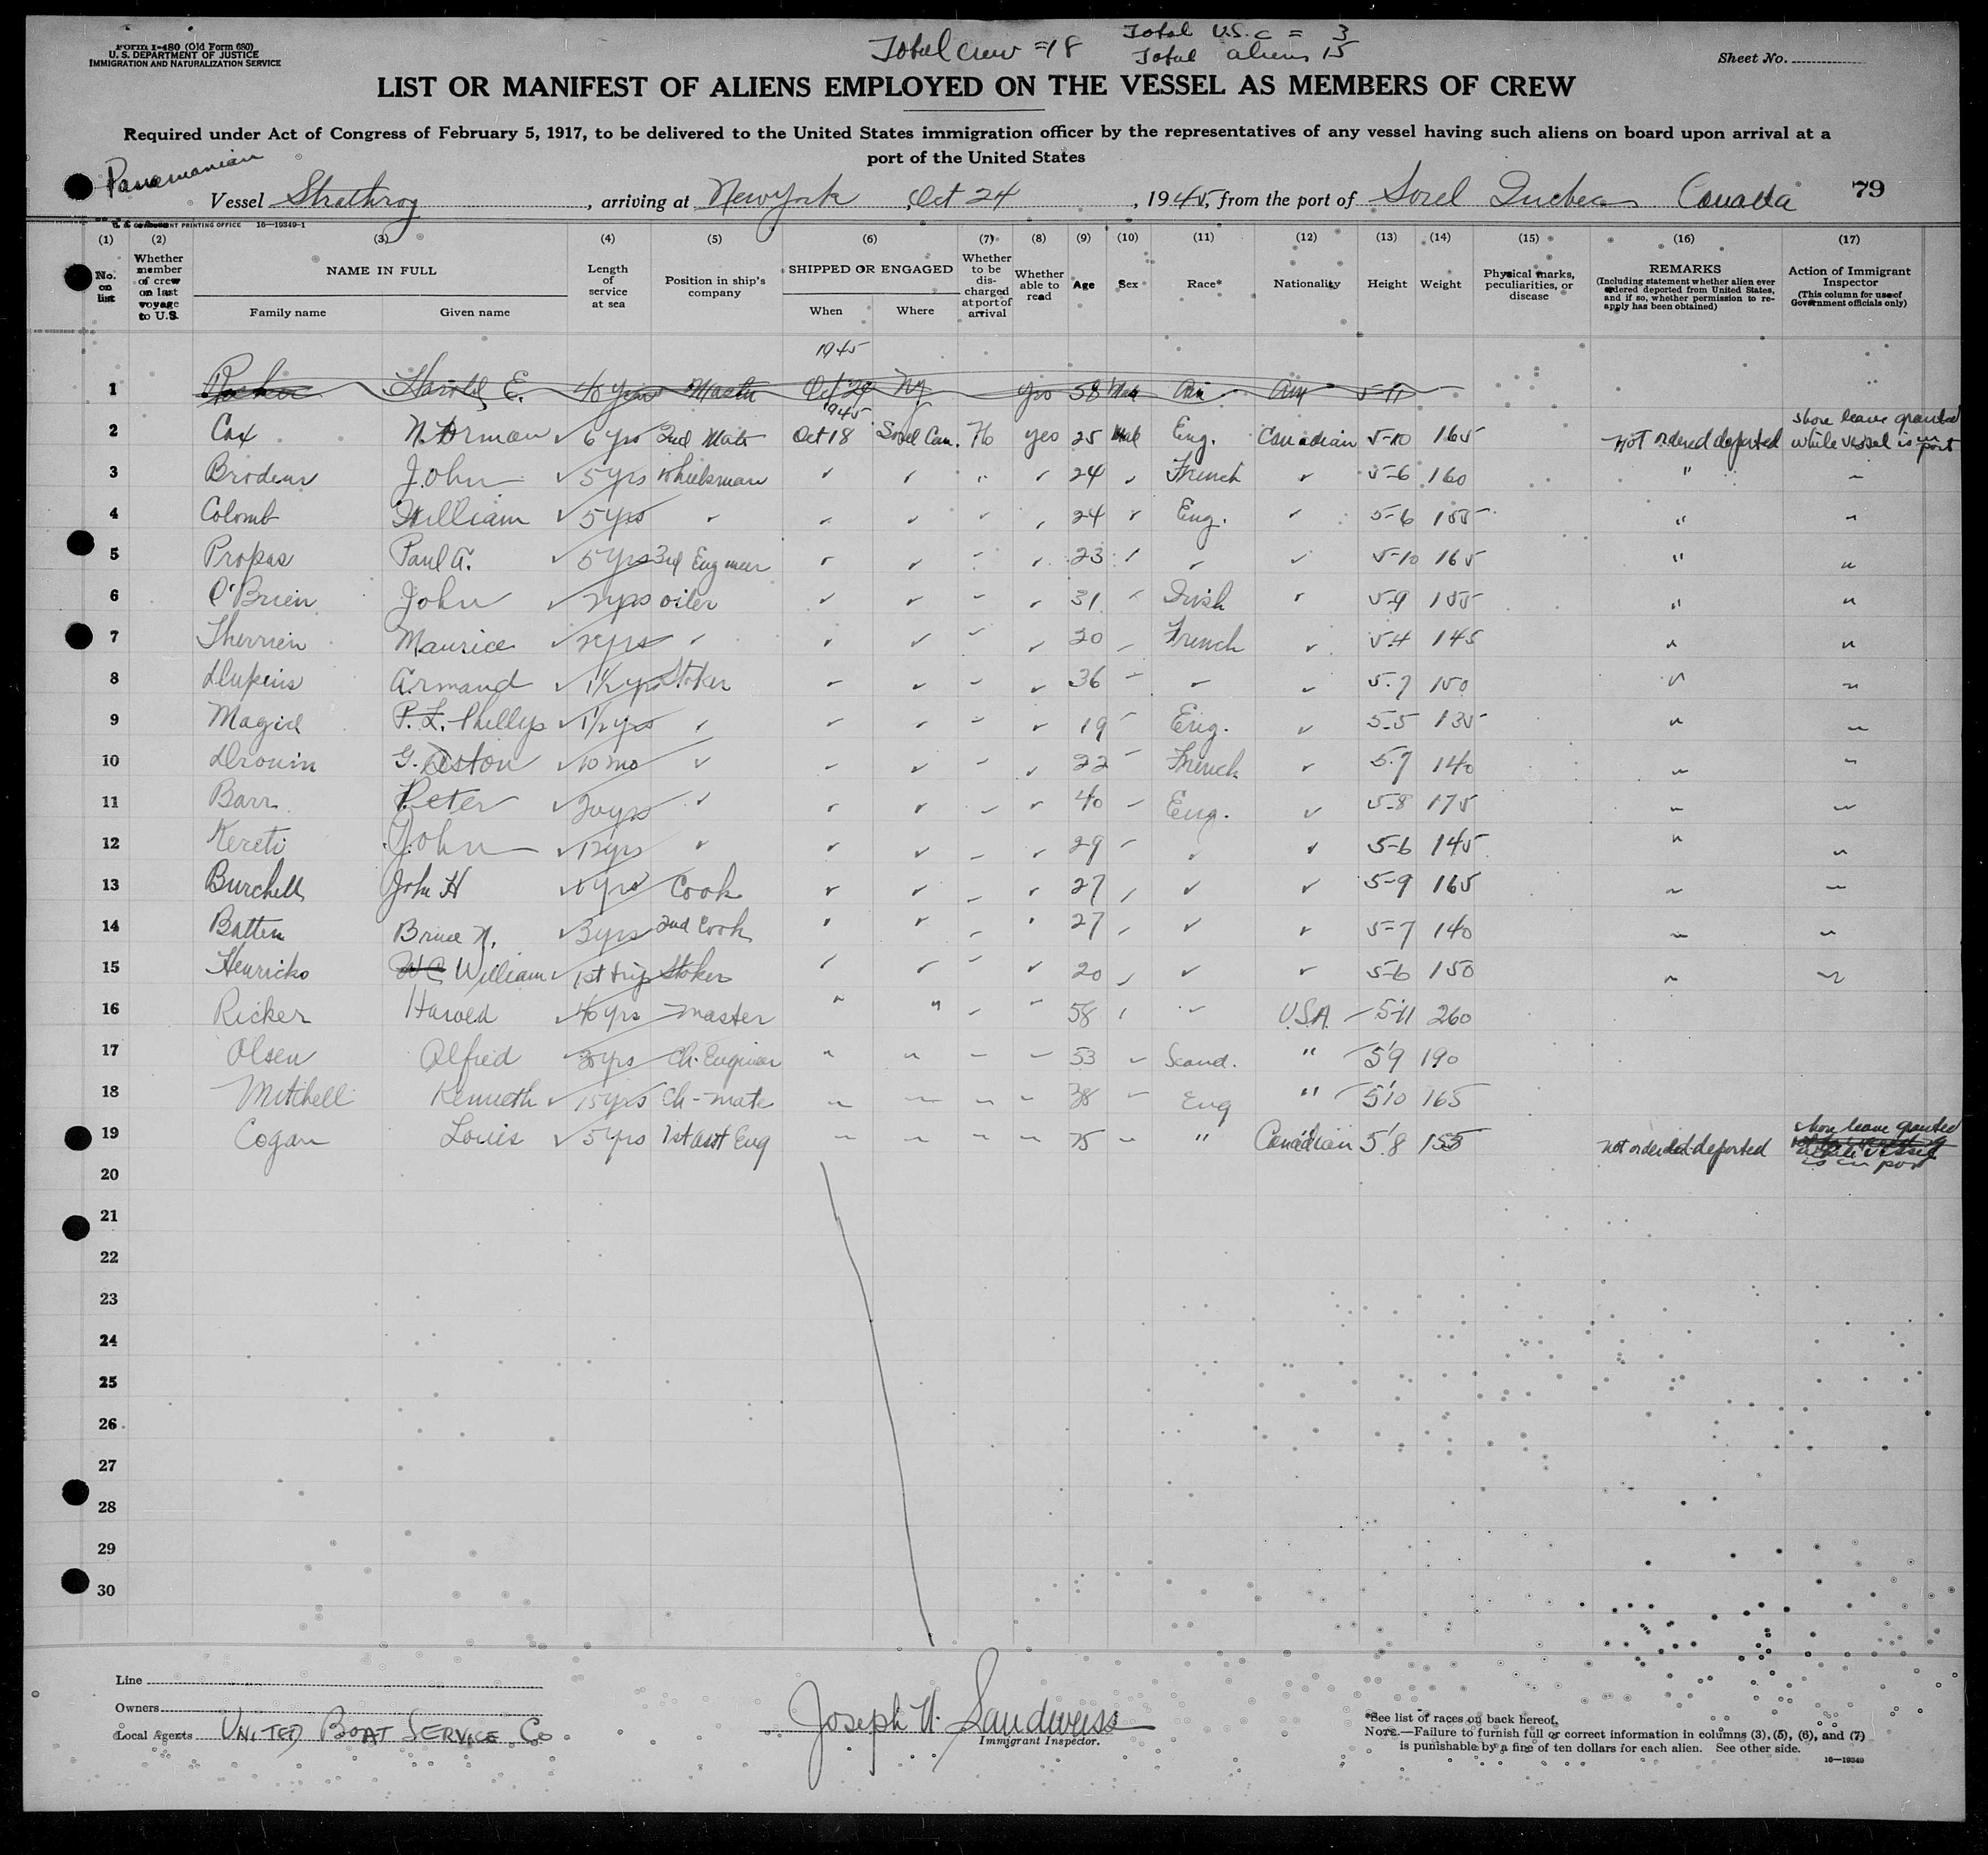 Form I-480 (Old Form 680)
U. S. DEPARTMENT OF JUSTICE
IMMIGRATION AND NATURALIZATION SERVICE
Total crew = 18 Total U.S.C = 3
Total aliens 15
Sheet No.
LIST OR MANIFEST OF ALIENS EMPLOYED ON THE VESSEL AS MEMBERS OF CREW
Required under Act of Congress of February 5, 1917, to be delivered to the United States immigration officer by the representatives of any vessel having such aliens on board upon arrival at a
port of the United States
Panamanian
Vessel Strathroy, arriving at New York, Oct 24, 1945, from the port of Sorel Quebec Canada 79
GOVERNMENT PRINTING OFFICE 16—19349-1
(1) (2) (3) (4) (5) (6) (7) (8) (9) (10) (11) (12) (13) (14) (15) (16) (17)
No. on list
Whether member of crew on last voyage to U.S.
NAME IN FULL
Family name
Given name
Length of service at sea
Position in ship's company
SHIPPED OR ENGAGED
When
Where
Whether to be discharged at port of arrival
Whether able to read
Age
Sex
Race*
Nationality
Height
Weight
Physical marks, peculiarities, or disease
REMARKS
(Including statement whether alien ever ordered deported from United States, and if so, whether permission to reapply has been obtained)
Action of Immigrant Inspector
(This column for use of Government officials only)
1945
1 Harold E. 40 years Master Oct 20 NY yes 58 5-11
1945
2 Cox Norman ✓ 6 yrs 2nd Mate Oct 18 Sorel Can. No yes 25 Male Eng. Canadian 5-10 165 Not ordered deported shore leave granted while vessel is in port
3 Brodeur John ✓ 5 yrs Wheelsman ✓ ✓ " ✓ 24 ✓ French ✓ 5-6 160 " "
4 Colomb William ✓ 5 yrs ✓ ✓ ✓ ✓ ✓ 24 ✓ Eng. ✓ 5-6 155 " "
5 Propas Paul A. ✓ 5 yrs 3rd Engineer ✓ ✓ " ✓ 23 ✓ ✓ ✓ 5-10 165 " "
6 O'Brien John ✓ 2 yrs oiler ✓ ✓ " ✓ 31 ✓ Irish ✓ 5-9 155 " "
7 Therrien Maurice ✓ 2 yrs ✓ ✓ ✓ " ✓ 20 " French ✓ 5-4 145 " "
8 Dupuis Armand ✓ 1½ yrs Stoker ✓ ✓ " ✓ 36 " ✓ ✓ 5-7 150 " "
9 Magid P. L. Phillip ✓ 1½ yrs ✓ ✓ ✓ " ✓ 19 " Eng. ✓ 5-5 135 " "
10 Drouin Gaston ✓ 10 mo ✓ ✓ ✓ " ✓ 22 " French ✓ 5-7 140 " "
11 Barr Peter ✓ 20 yrs ✓ ✓ ✓ " ✓ 40 " Eng. ✓ 5-8 175 " "
12 Kereti John ✓ 12 yrs ✓ ✓ ✓ " ✓ 29 " ✓ ✓ 5-6 145 " "
13 Burchell John H ✓ yrs Cook ✓ ✓ " ✓ 27 ✓ ✓ ✓ 5-9 165 " "
14 Batten Bruce N. ✓ 3 yrs 2nd Cook ✓ ✓ " ✓ 27 ✓ ✓ ✓ 5-7 140 " "
15 Henricks William ✓ 1st trip Stoker ✓ ✓ " ✓ 20 ✓ ✓ ✓ 5-6 150 " "
16 Ricker Harold ✓ 40 yrs master " " " " 58 ✓ " U.S.A. 5'11 260
17 Olsen Alfred yrs Ch. Engineer " " " " 53 " Scand. " 5'9 190
18 Mitchell Kenneth ✓ 15 yrs Ch-mate " " " " 38 " Eng " 5'10 165
19 Cogan Louis ✓ 5 yrs 1st asst Eng " " " " " " Canadian 5'8 155 not ordered deported shore leave granted while vessel is in port
20
21
22
23
24
25
26
27
28
29
30
Line
Owners
Local Agents UNITED BOAT SERVICE Co
Joseph N. Sandweiss
Immigrant Inspector.
*See list of races on back hereof.
NOTE.—Failure to furnish full or correct information in columns (3), (5), (6), and (7)
is punishable by a fine of ten dollars for each alien. See other side.
16—19349